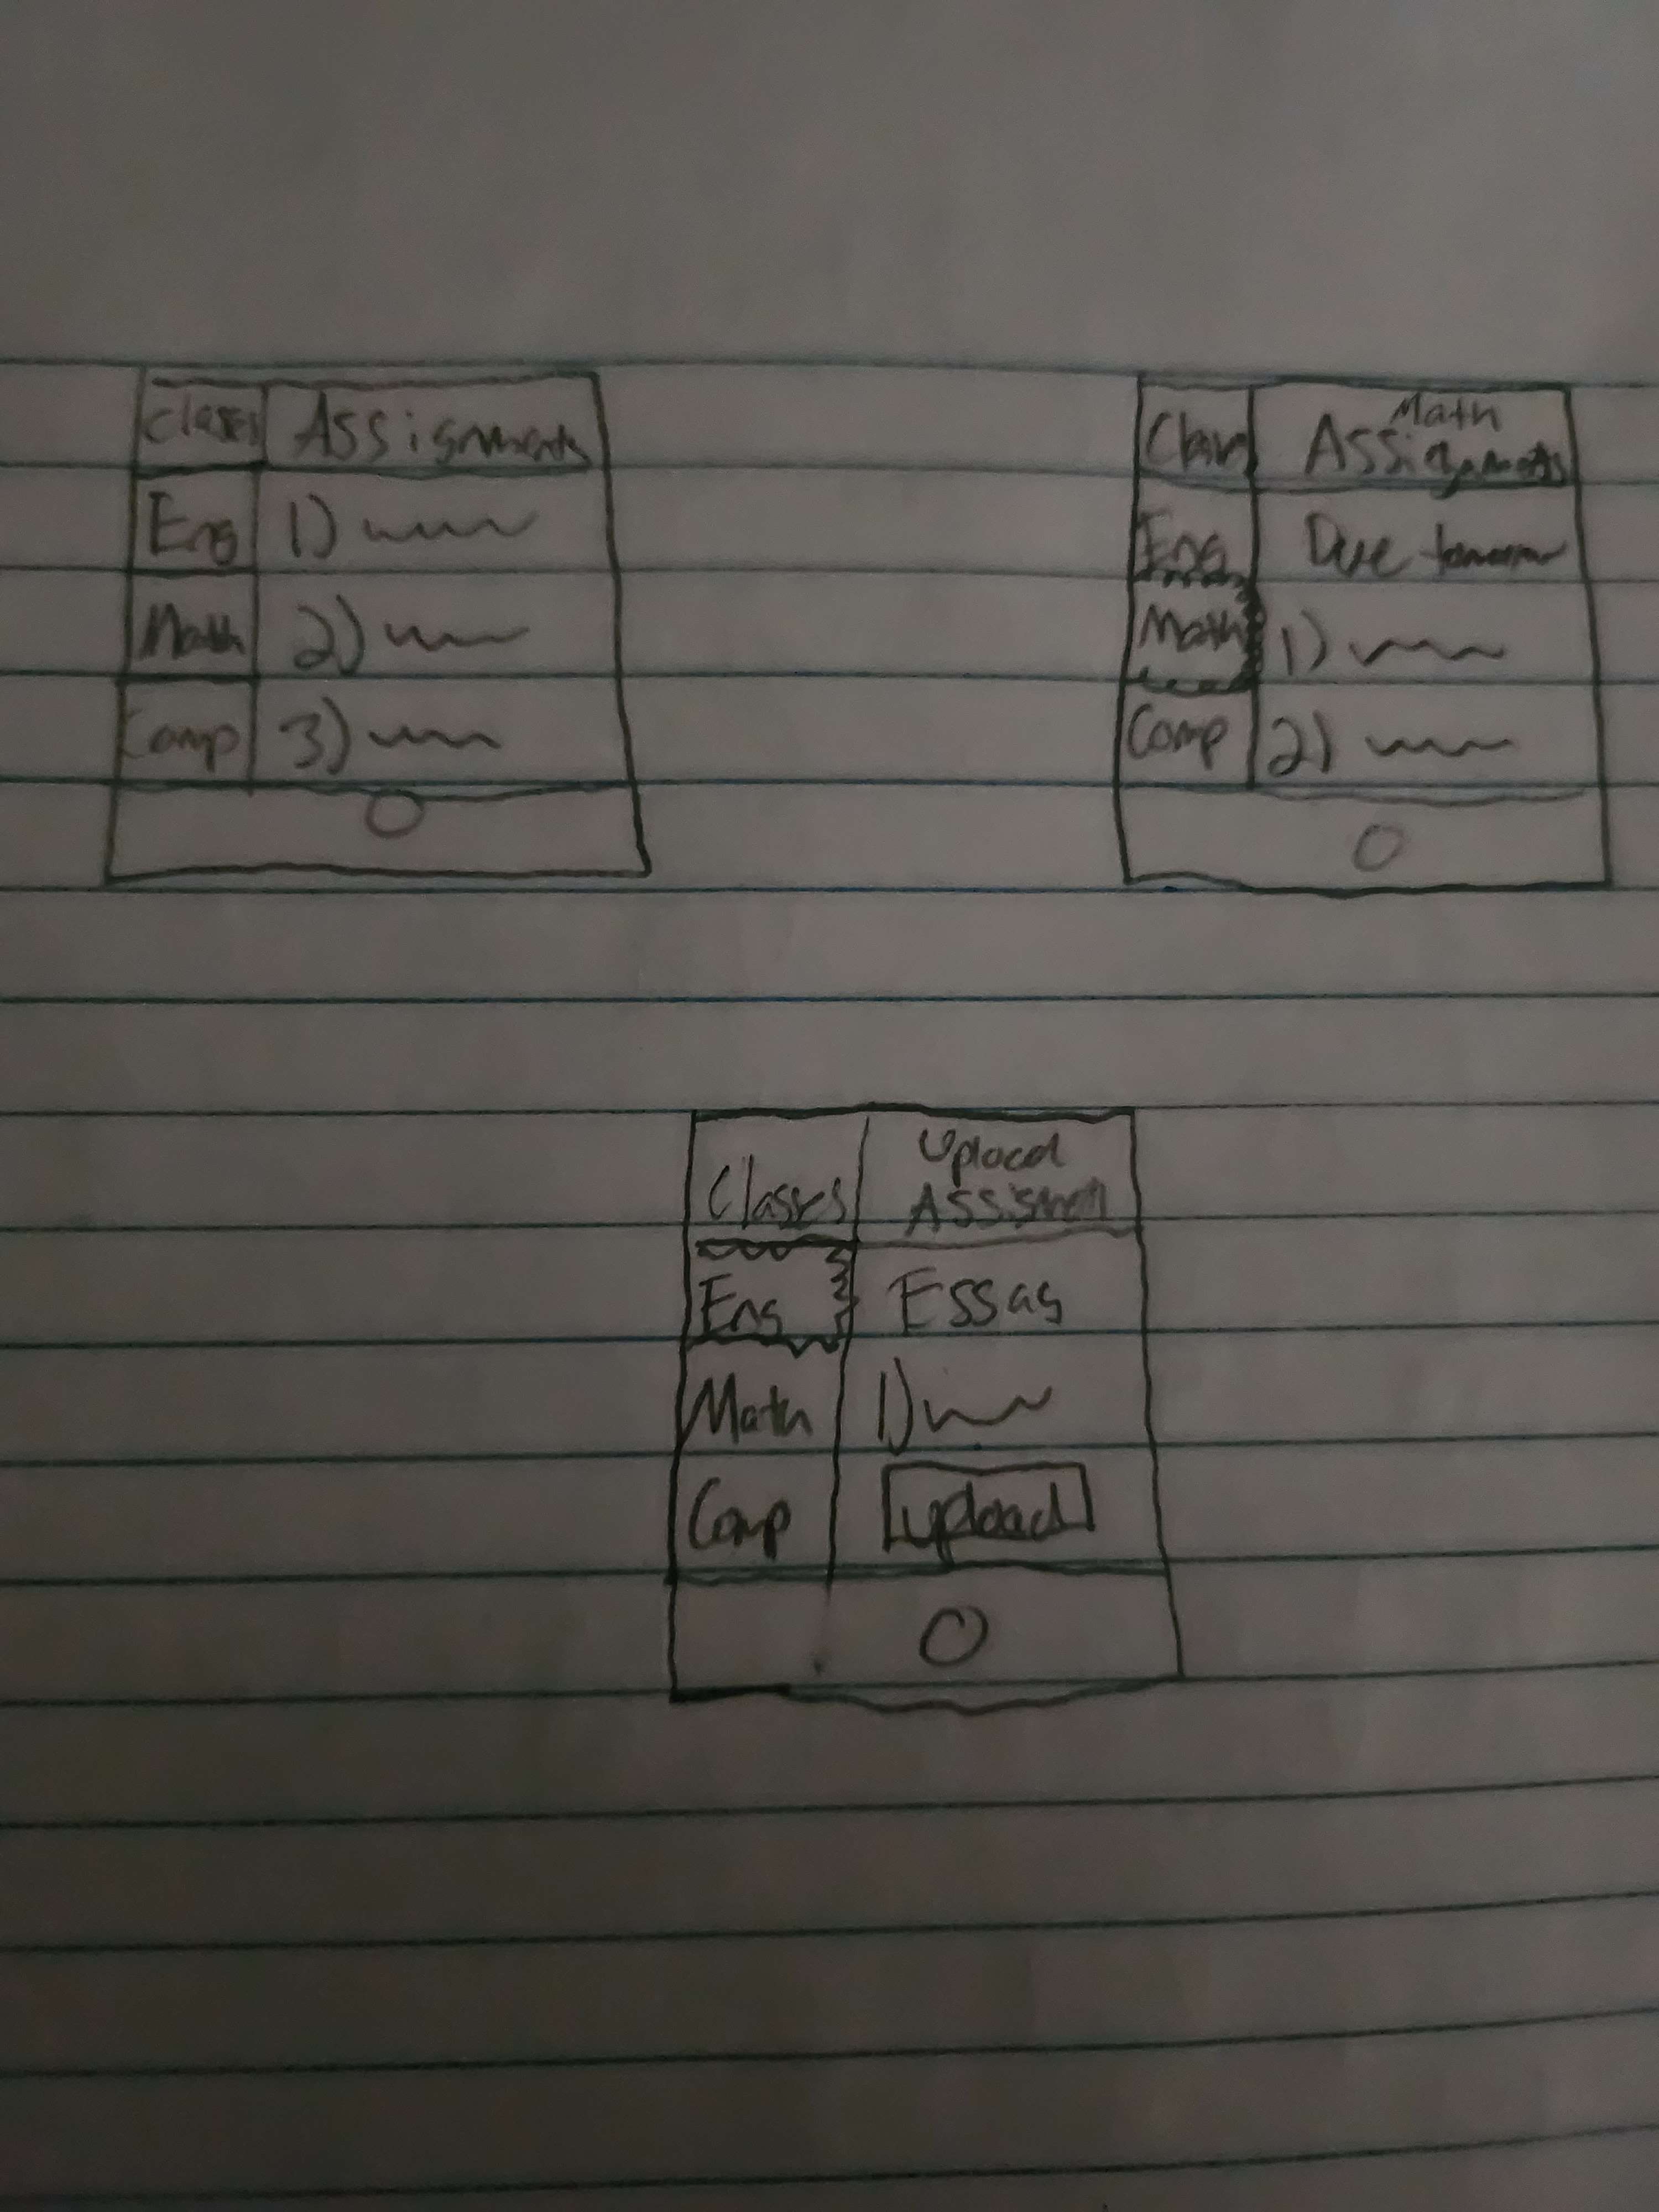 Classes Assignments
Eng 1)
Math 2)
Comp 3)
Math
Class Assignments
Eng Due tomorrow
Math 1)
Comp 2)
Upload
Classes
Eng Essay
Math 1)
Comp upload